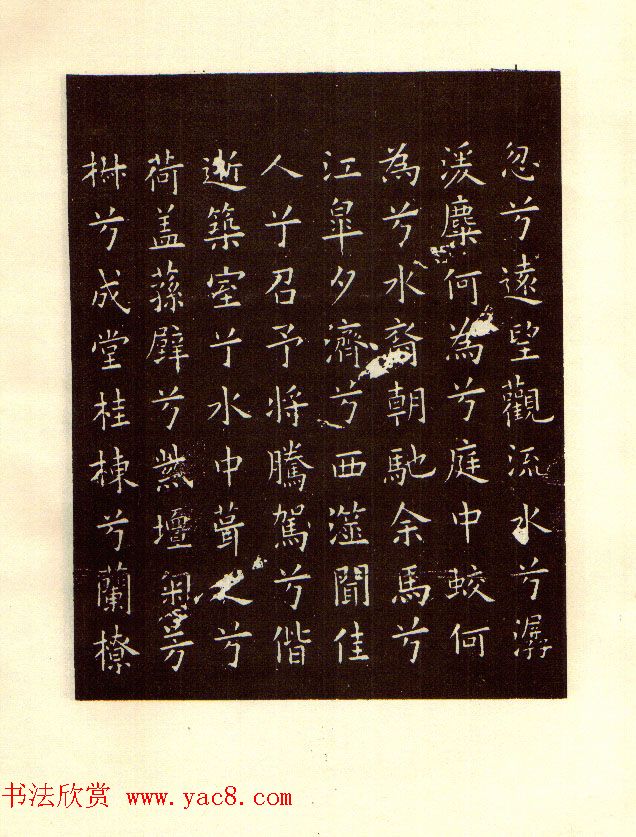 忽兮遠望觀流水兮潺
湲麋何為兮庭中蛟何
為兮水裔朝馳余馬兮
江皐夕濟兮西澨聞佳
人兮召予將騰駕兮偕
逝築室兮水中葺之兮
荷盖蓀壁兮紫壇匊芳
椒兮成堂桂棟兮蘭橑
书法欣赏 www.yac8.com